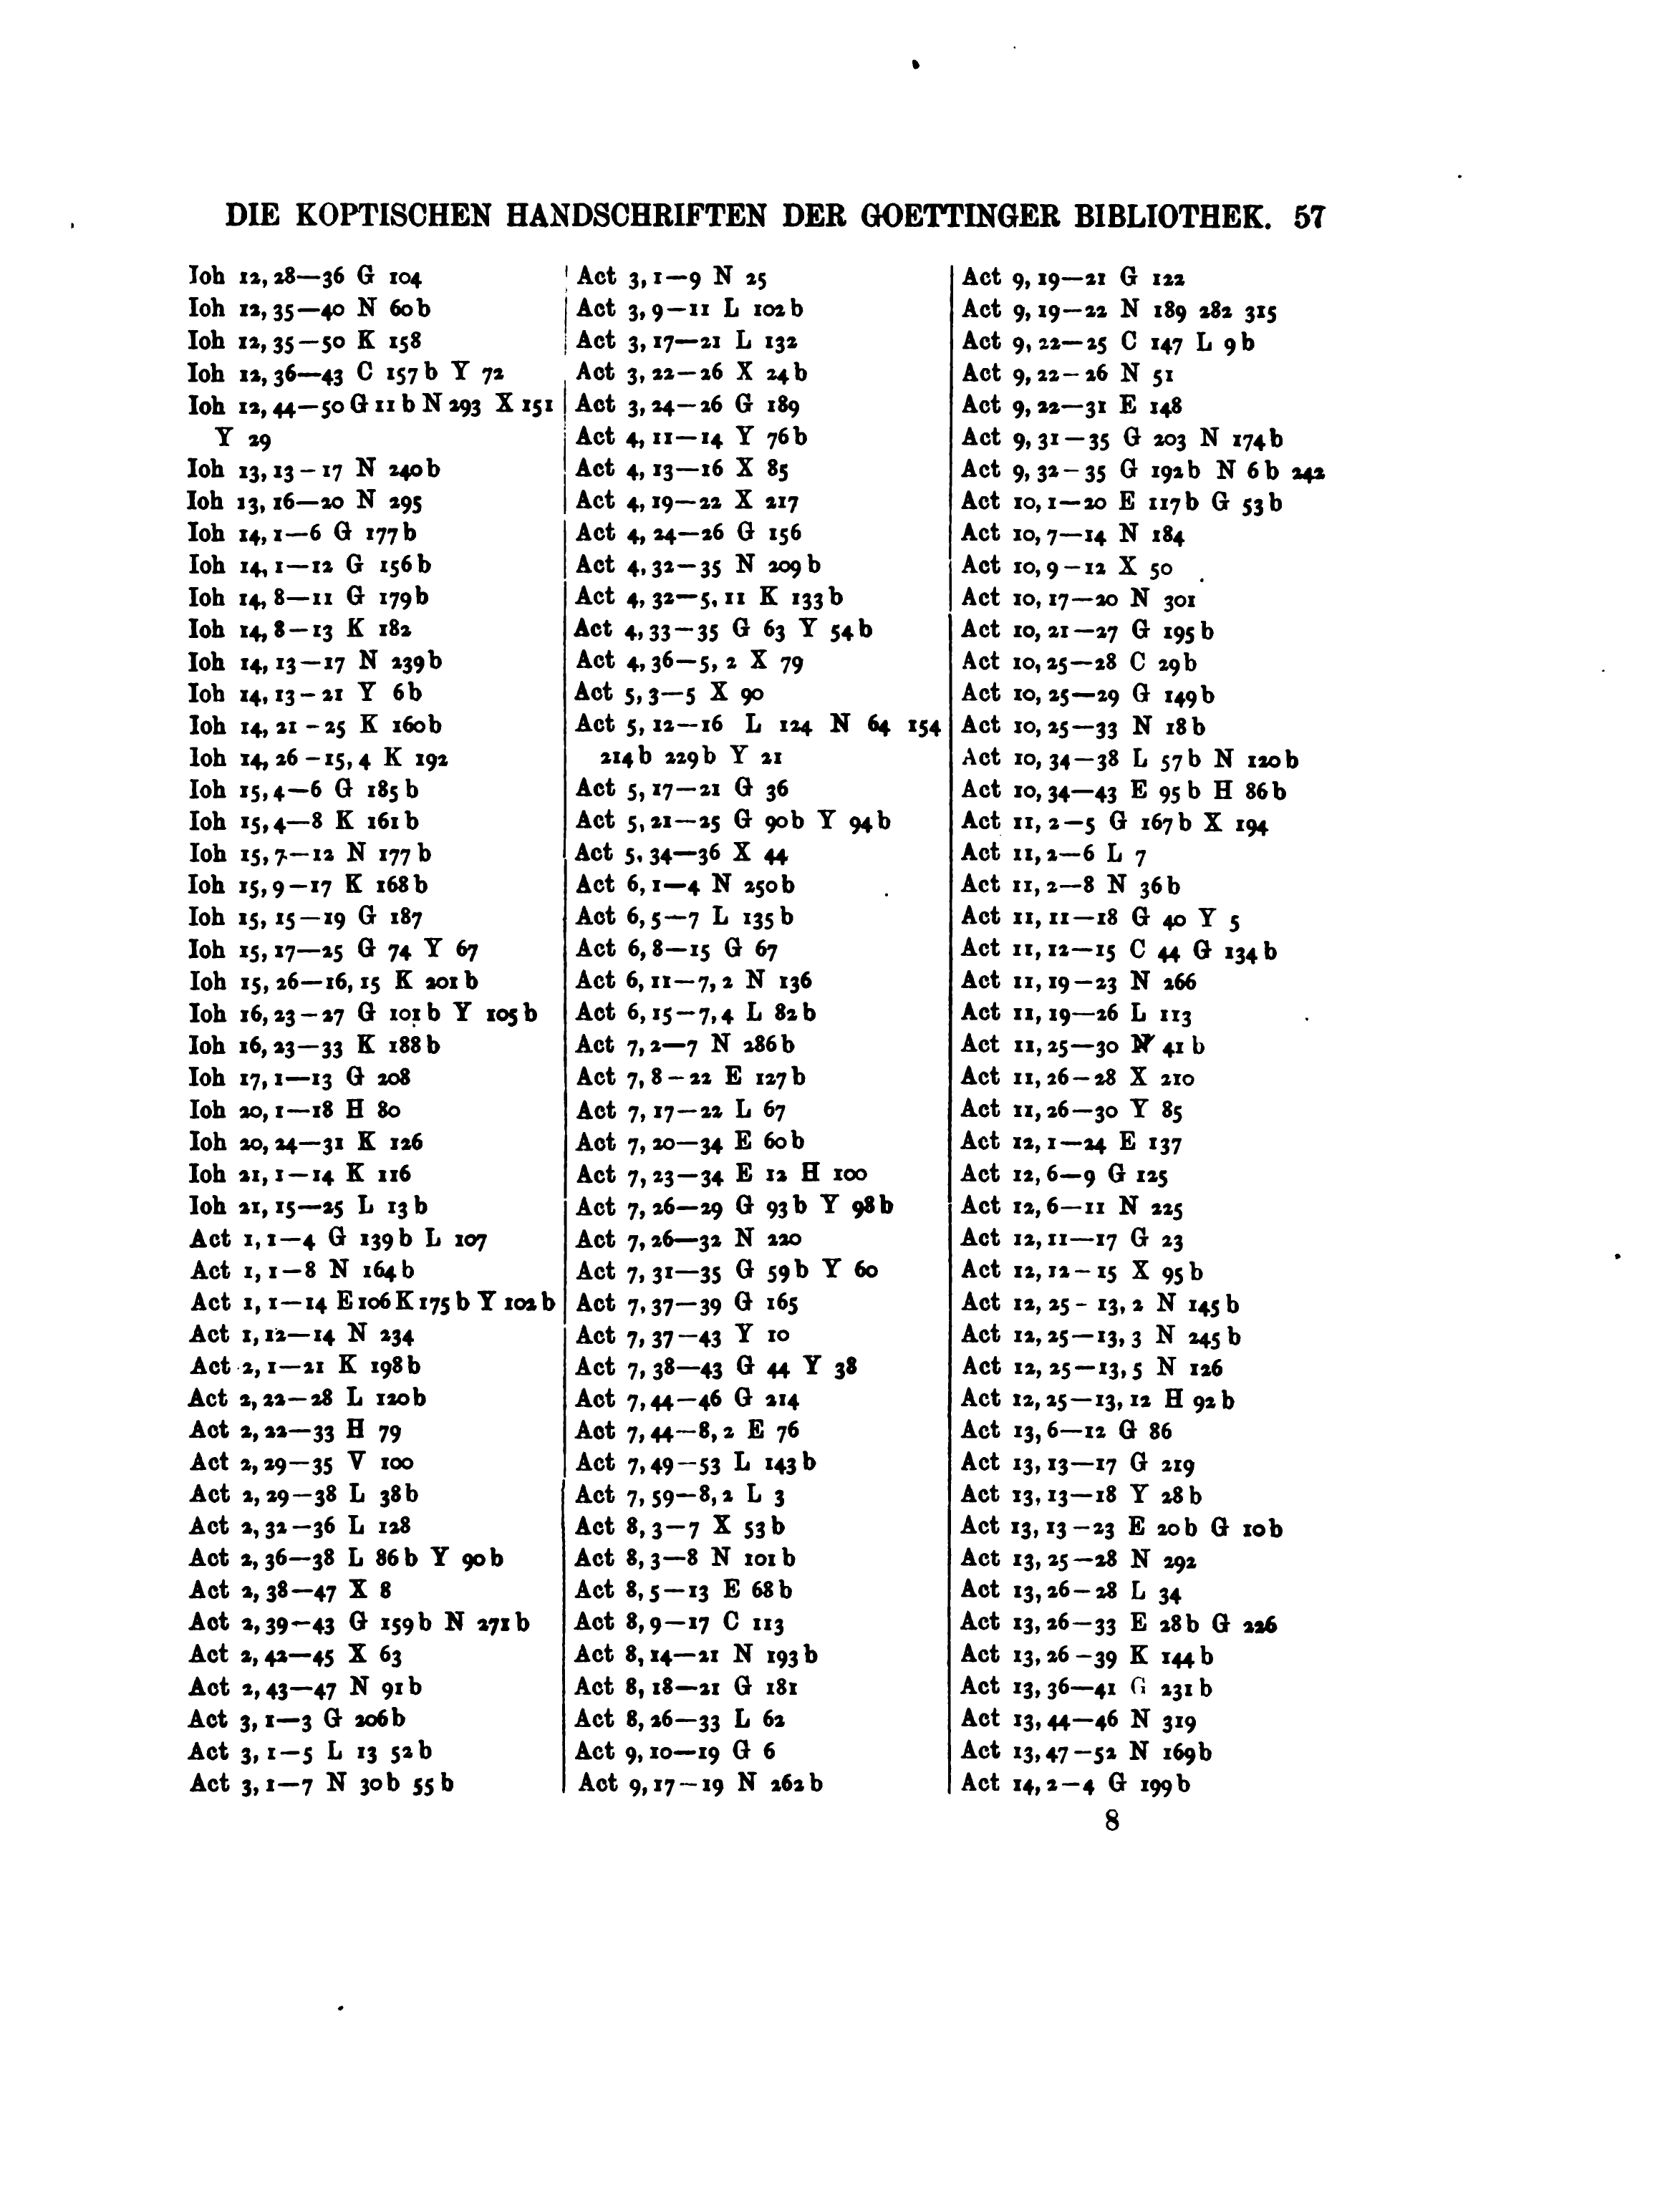 DIE KOPTISCHEN HANDSCHRIFTEN DER GOETTINGER BIBLIOTHEK. 57
Ioh 12, 28—36 G 104
Ioh 12, 35—40 N 60b
Ioh 12, 35—50 K 158
Ioh 12, 36—43 C 157b Y 72
Ioh 12, 44—50 G 11b N 293 X 151
Y 29
Ioh 13, 13—17 N 240b
Ioh 13, 16—20 N 295
Ioh 14, 1—6 G 177b
Ioh 14, 1—12 G 156b
Ioh 14, 8—11 G 179b
Ioh 14, 8—13 K 182
Ioh 14, 13—17 N 239b
Ioh 14, 13—21 Y 6b
Ioh 14, 21—25 K 160b
Ioh 14, 26—15, 4 K 192
Ioh 15, 4—6 G 185b
Ioh 15, 4—8 K 161b
Ioh 15, 7—12 N 177b
Ioh 15, 9—17 K 168b
Ioh 15, 15—19 G 187
Ioh 15, 17—25 G 74 Y 67
Ioh 15, 26—16, 15 K 201b
Ioh 16, 23—27 G 101b Y 105b
Ioh 16, 23—33 K 188b
Ioh 17, 1—13 G 208
Ioh 20, 1—18 H 80
Ioh 20, 24—31 K 126
Ioh 21, 1—14 K 116
Ioh 21, 15—25 L 13b
Act 1, 1—4 G 139b L 107
Act 1, 1—8 N 164b
Act 1, 1—14 E 106 K 175b Y 102b
Act 1, 12—14 N 234
Act 2, 1—21 K 198b
Act 2, 22—28 L 120b
Act 2, 22—33 H 79
Act 2, 29—35 V 100
Act 2, 29—38 L 38b
Act 2, 32—36 L 128
Act 2, 36—38 L 86b Y 90b
Act 2, 38—47 X 8
Act 2, 39—43 G 159b N 271b
Act 2, 42—45 X 63
Act 2, 43—47 N 91b
Act 3, 1—3 G 206b
Act 3, 1—5 L 13 52b
Act 3, 1—7 N 30b 55b
Act 3, 1—9 N 25
Act 3, 9—11 L 102b
Act 3, 17—21 L 132
Act 3, 22—26 X 24b
Act 3, 24—26 G 189
Act 4, 11—14 Y 76b
Act 4, 13—16 X 85
Act 4, 19—22 X 217
Act 4, 24—26 G 156
Act 4, 32—35 N 209b
Act 4, 32—5, 11 K 133b
Act 4, 33—35 G 63 Y 54b
Act 4, 36—5, 2 X 79
Act 5, 3—5 X 90
Act 5, 12—16 L 124 N 64 154
214b 229b Y 21
Act 5, 17—21 G 36
Act 5, 21—25 G 90b Y 94b
Act 5, 34—36 X 44
Act 6, 1—4 N 250b
Act 6, 5—7 L 135b
Act 6, 8—15 G 67
Act 6, 11—7, 2 N 136
Act 6, 15—7, 4 L 82b
Act 7, 2—7 N 286b
Act 7, 8—22 E 127b
Act 7, 17—22 L 67
Act 7, 20—34 E 60b
Act 7, 23—34 E 12 H 100
Act 7, 26—29 G 93b Y 98b
Act 7, 26—32 N 220
Act 7, 31—35 G 59b Y 60
Act 7, 37—39 G 165
Act 7, 37—43 Y 10
Act 7, 38—43 G 44 Y 38
Act 7, 44—46 G 214
Act 7, 44—8, 2 E 76
Act 7, 49—53 L 143b
Act 7, 59—8, 2 L 3
Act 8, 3—7 X 53b
Act 8, 3—8 N 101b
Act 8, 5—13 E 68b
Act 8, 9—17 C 113
Act 8, 14—21 N 193b
Act 8, 18—21 G 181
Act 8, 26—33 L 62
Act 9, 10—19 G 6
Act 9, 17—19 N 262b
Act 9, 19—21 G 122
Act 9, 19—22 N 189 282 315
Act 9, 22—25 C 147 L 9b
Act 9, 22—26 N 51
Act 9, 22—31 E 148
Act 9, 31—35 G 203 N 174b
Act 9, 32—35 G 192b N 6b 242
Act 10, 1—20 E 117b G 53b
Act 10, 7—14 N 184
Act 10, 9—12 X 50
Act 10, 17—20 N 301
Act 10, 21—27 G 195b
Act 10, 25—28 C 29b
Act 10, 25—29 G 149b
Act 10, 25—33 N 18b
Act 10, 34—38 L 57b N 120b
Act 10, 34—43 E 95b H 86b
Act 11, 2—5 G 167b X 194
Act 11, 2—6 L 7
Act 11, 2—8 N 36b
Act 11, 11—18 G 40 Y 5
Act 11, 12—15 C 44 G 134b
Act 11, 19—23 N 266
Act 11, 19—26 L 113
Act 11, 25—30 N 41b
Act 11, 26—28 X 210
Act 11, 26—30 Y 85
Act 12, 1—24 E 137
Act 12, 6—9 G 125
Act 12, 6—11 N 225
Act 12, 11—17 G 23
Act 12, 12—15 X 95b
Act 12, 25—13, 2 N 145b
Act 12, 25—13, 3 N 245b
Act 12, 25—13, 5 N 126
Act 12, 25—13, 12 H 92b
Act 13, 6—12 G 86
Act 13, 13—17 G 219
Act 13, 13—18 Y 28b
Act 13, 13—23 E 20b G 10b
Act 13, 25—28 N 292
Act 13, 26—28 L 34
Act 13, 26—33 E 28b G 226
Act 13, 26—39 K 144b
Act 13, 36—41 G 231b
Act 13, 44—46 N 319
Act 13, 47—52 N 169b
Act 14, 2—4 G 199b
8